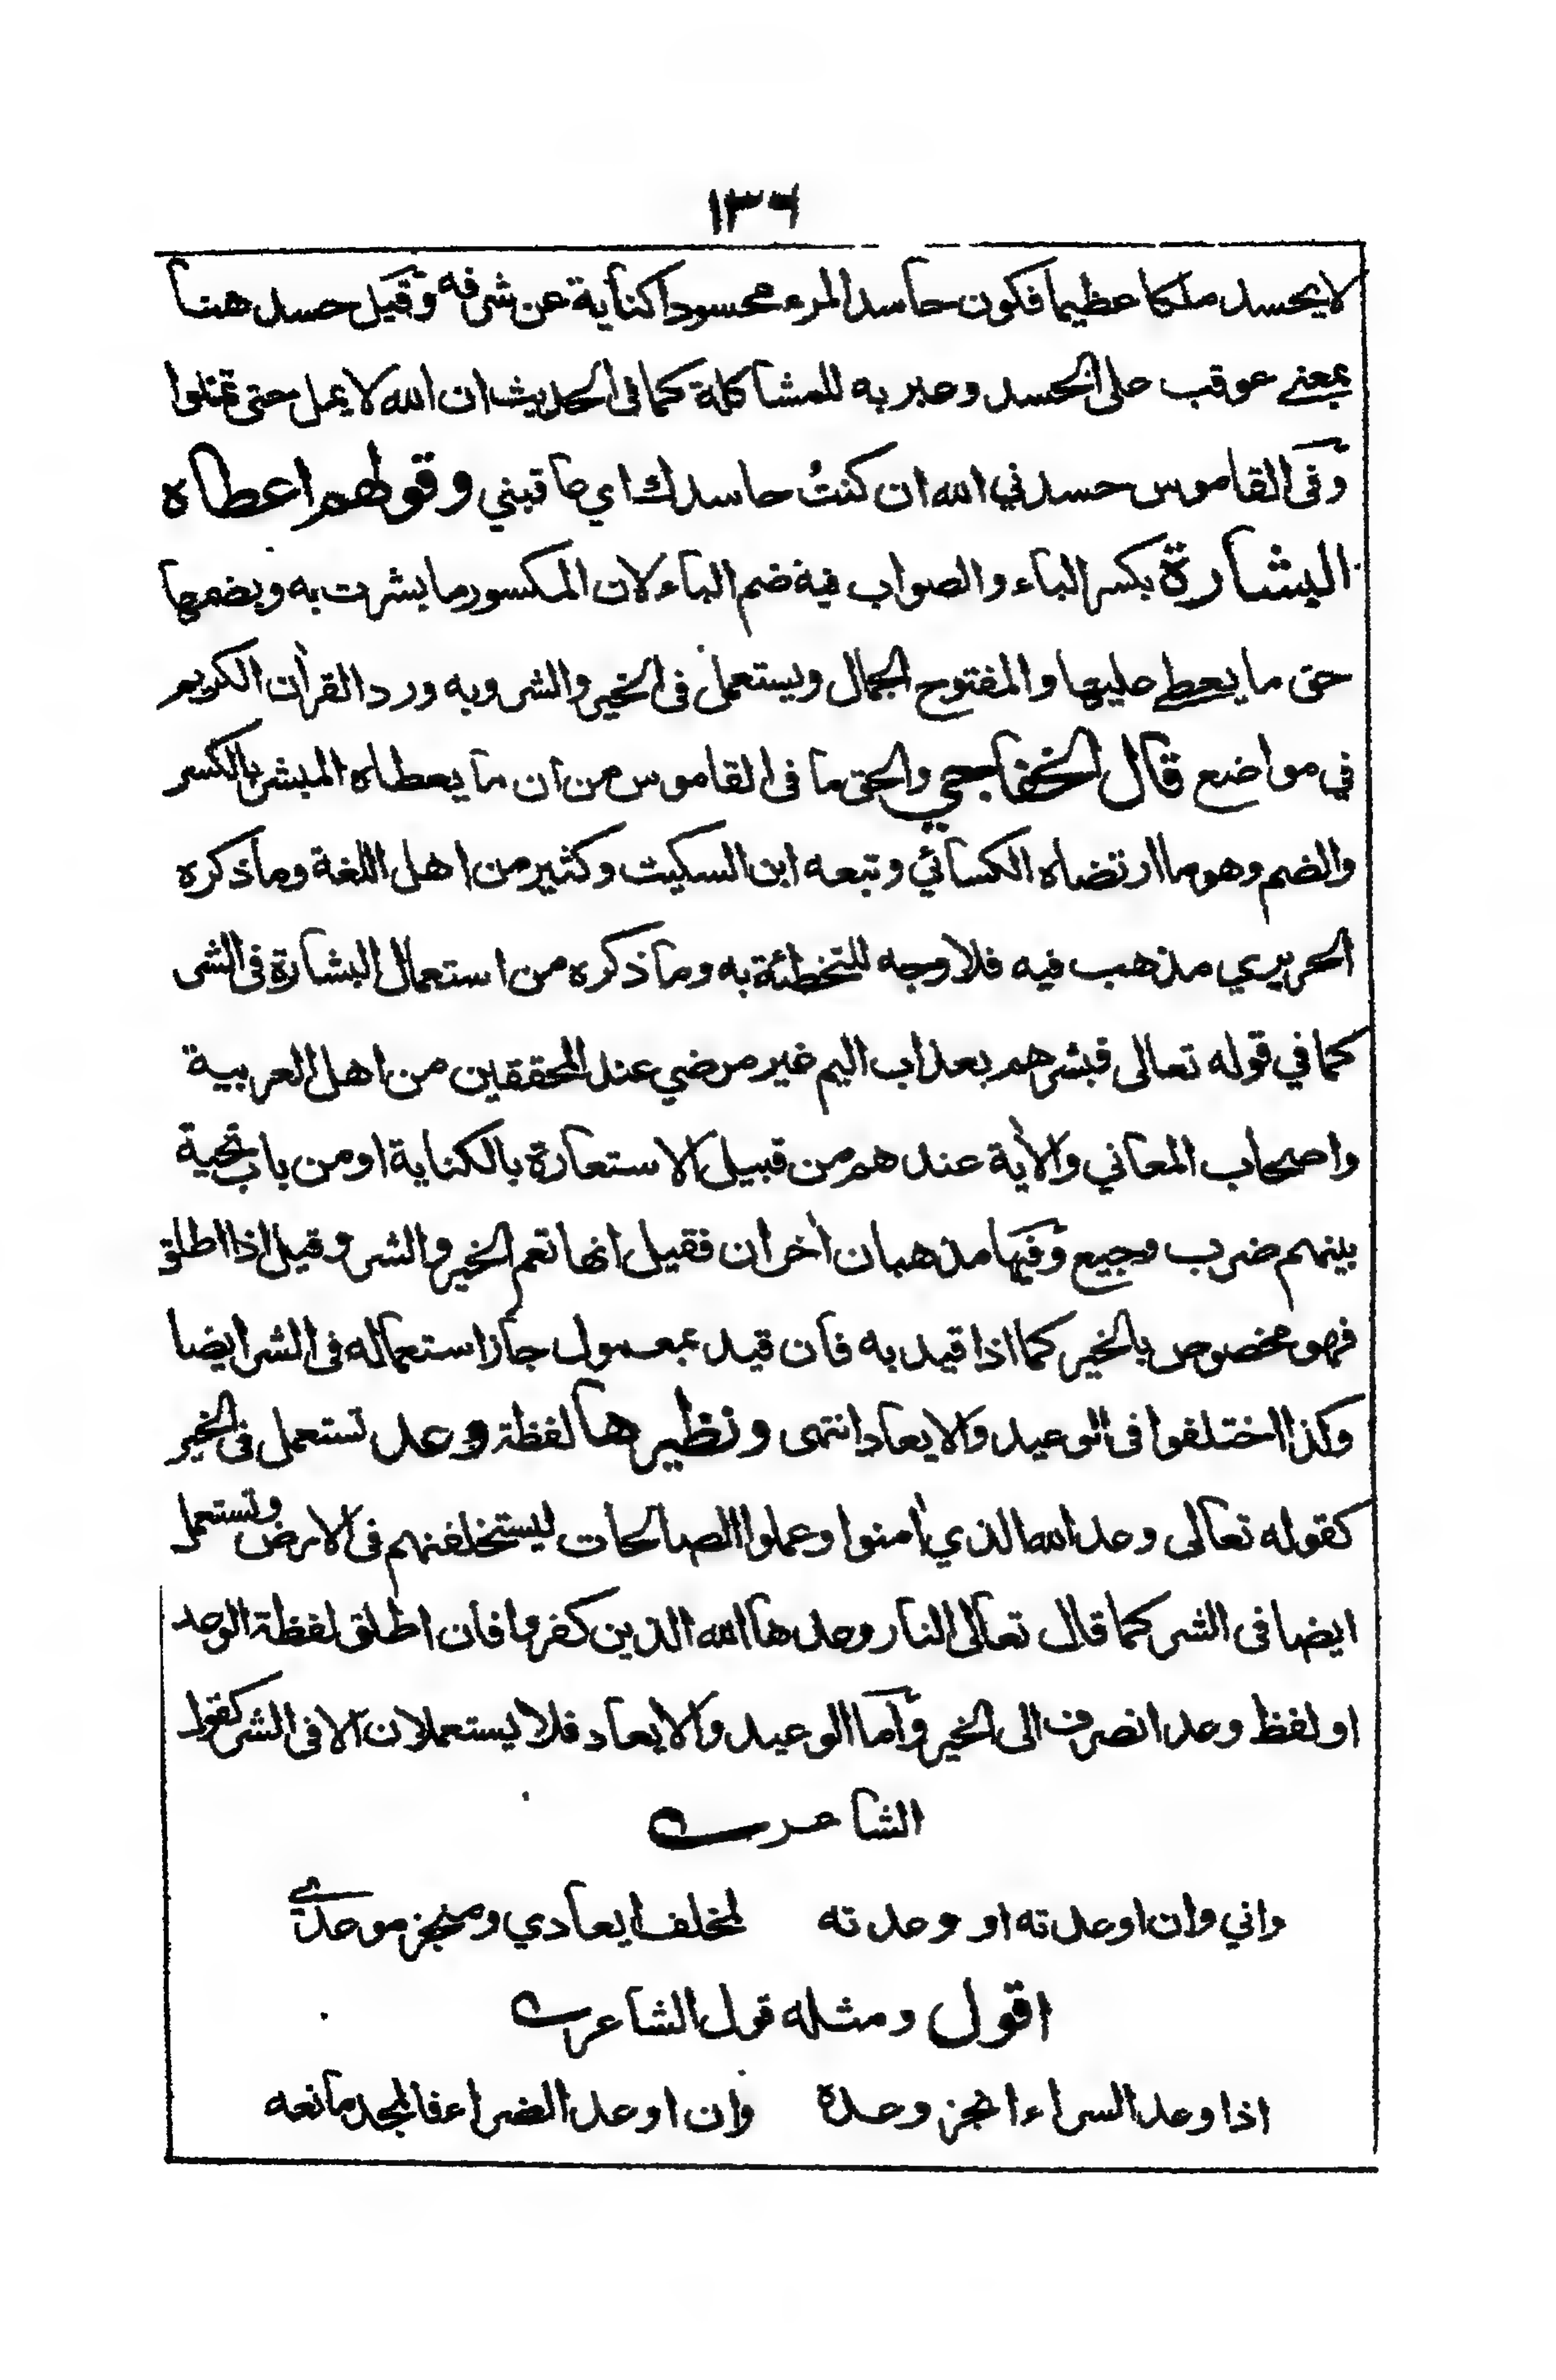 ١٣٦
لا يحسد ملكا عظيما فكون حاسد المرء محسودا كناية عن شرفه وقيل حسد هنا
بمعنے عوقب على الحسد وعبر به للمشاكلة كما فى الحديث ان الله لا يمل حتى تملوا
وفى القاموس حسدني الله ان كنتُ حاسدك اي عاقبني وقولهم اعطاه
البشارة بكسر الباء والصواب فيه ضم الباء لان المكسور ما بشرت به وبضمها
حق ما يعطے عليها والمفتوح الجمال ويستعمل فى الخير والشر وبه ورد القرأن الكريم
في مواضع قال الخفاجي والحق ما فى القاموس من ان ما يعطاه المبشر بالكسر
والضم وهو ما ارتضاه الكسائي وتبعه ابن السكيت وكثير من اهل اللغة وما ذكره
الحريري مذهب فيه فلا وجه للتخطئة به وما ذكره من استعمال البشارة فى الشر
كما في قوله تعالى فبشرهم بعذاب اليم غير مرضي عند المحققين من اهل العربية
واصحاب المعاني والأية عندهم من قبيل الاستعارة بالكناية او من باب تحية
بينهم ضرب وجيع وفيها مذهبان أخران فقيل انها تعم الخير والشر وقيل اذا اطلق
فهو مخصوص بالخير كما اذا قيد به فان قيد بمعمول جاز استعماله فى الشر ايضا
وكذا اختلفوا فى الوعيد والايعاد انتهى ونظيرها لفظة وعد تستعمل فى الخير
كقوله تعالى وعد الله الذي أمنوا وعملوا الصالحات ليستخلفنهم فى الارض وتستعمل
ايضا فى الشر كما قال تعالى النار وعدها الله الذين كفروا فان اطلق لفظة الوعد
او لفظ وعد انصرف الى الخير وأما الوعيد والايعاد فلا يستعملان الا فى الشر كقول
الشاعر
واني وان اوعدته او وعدته لمخلف ايعادي ومنجز موعدي
اقول ومثله قول الشاعر
اذا وعد السراء انجز وعدة وان اوعد الضراء فالمجد مانعه